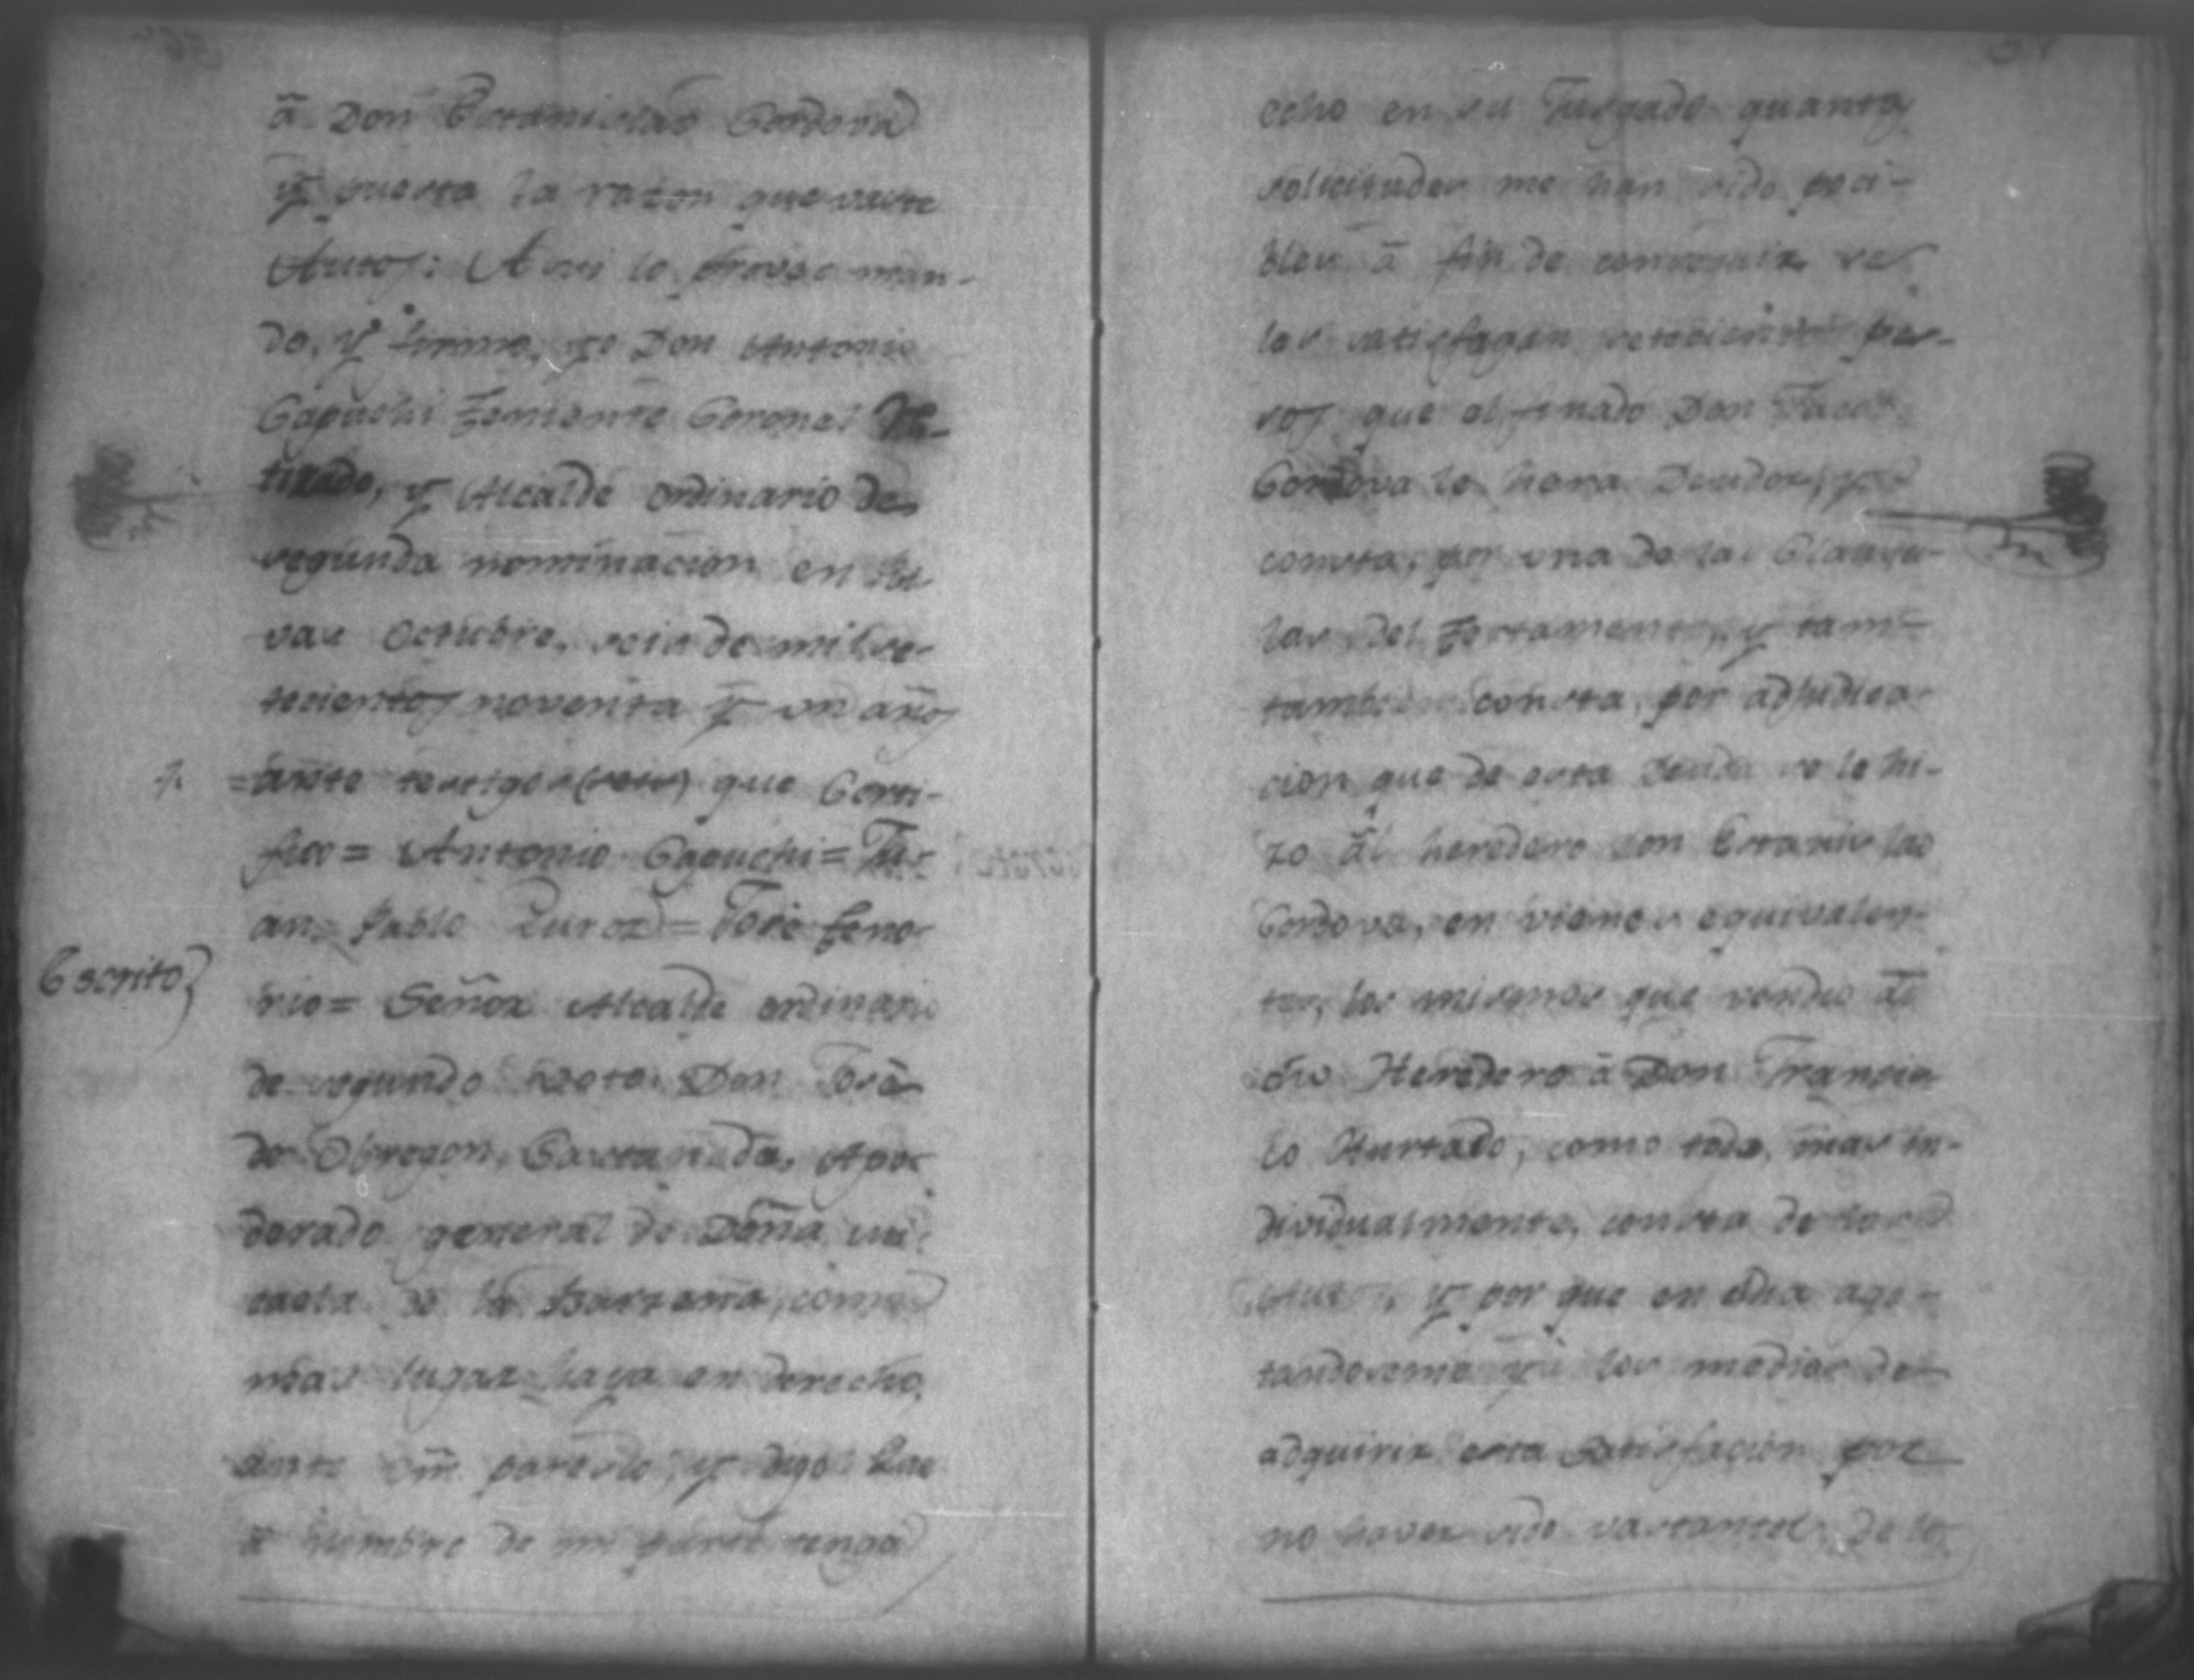 â Don Estanislao Cordova
y puesta la razon que vaste
Autos: Asi lo proveo man-
do, y firmo, yo Don Antonio
Capuchi Teniente Coronel Re-
tirado, y Alcalde ordinario de
segunda nominacion en
vas Octubre, seis de mil se-
tecientos noventa y un años
= ante testigos (    ) que Certi-
fico = Antonio Capuchi = Ju-
an Pablo Quroz = Jose Teno-
rio = Señor Alcalde ordinario
Escrito
de segundo voto. Don Josê
de Obregon, Castanêda, Apo-
derado general de Doña Mi-
caela de la Barzena, como
mas lugar haya en derecho,
ante Vm. paresco, y digo: Que
â nombre de mi parte tengo
echo en su Jusgado quantas
solicitudes me han sido poci-
bles â fin de conseguir se
les satisfagan setecientos pe-
sos que el finado Don Jacob
Cordova le hera Deudor, y
consta, por una de las Clausu-
las del Testamento, y tam-
tambien consta, por adjudica-
cion que de esta Deuda se le hi-
zo âl heredero Don Estanislao
Cordova, en vienes equivalen-
tes, los mismos que vendio
dho Heredero â Don Francis-
co Hurtado, como todo, mas in-
dividualmente, consta de los
Autos, y por que en el dia ago-
tandoseme ya los medios de
adquirir esta satisfacion por
no haver sido vastantes, de los